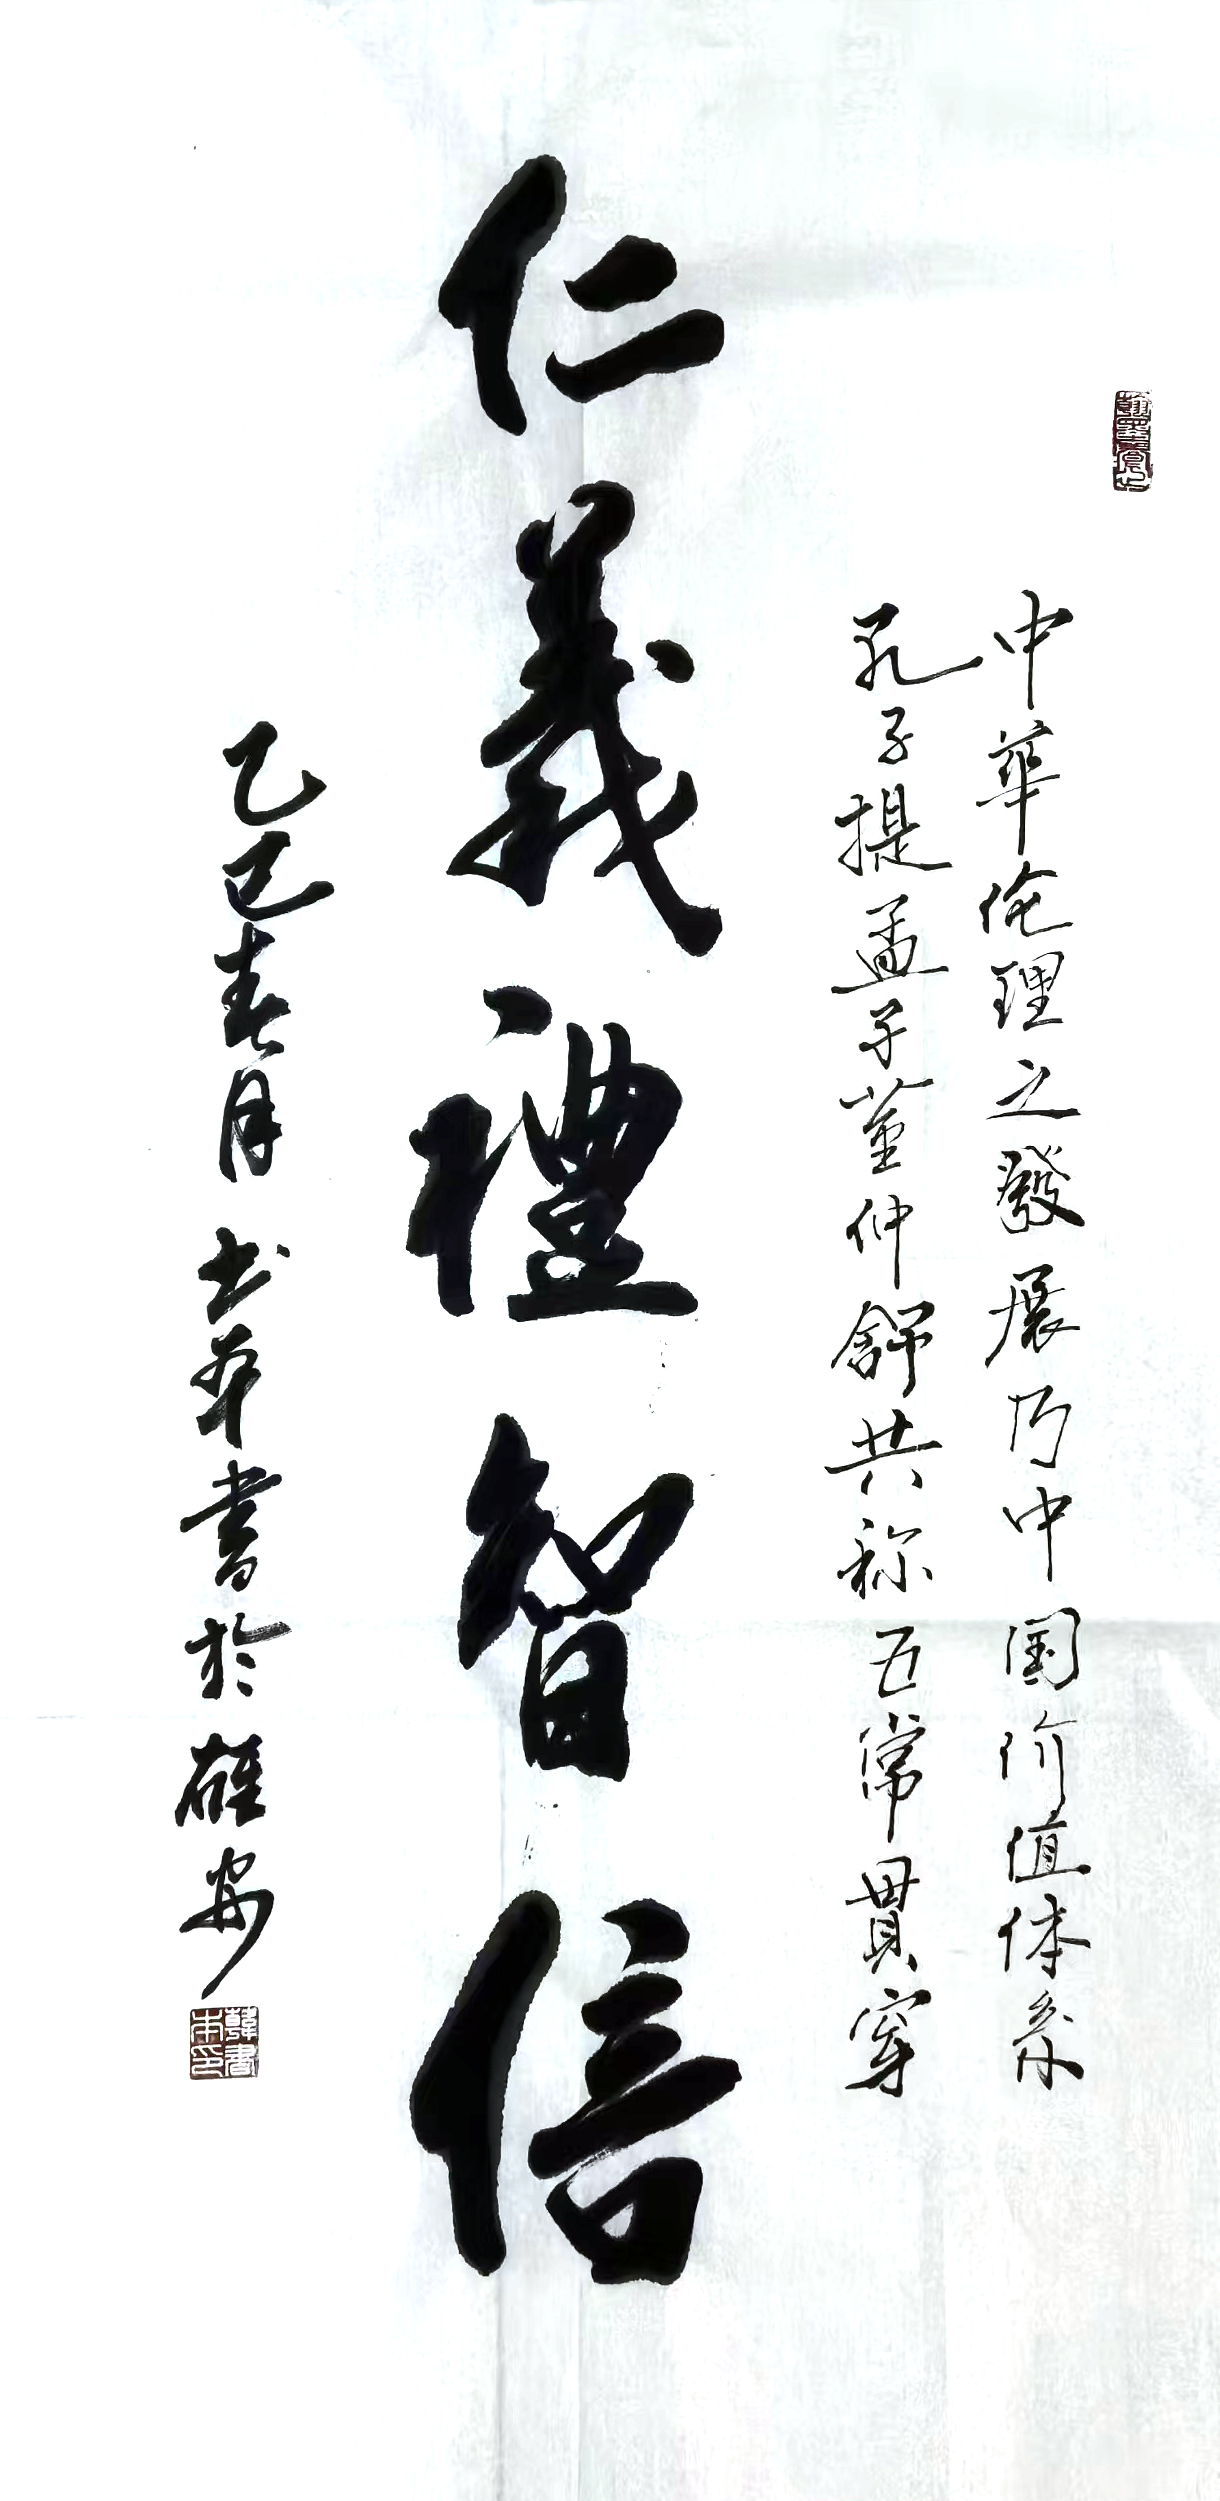 中華伦理之發展乃中国价值体系
孔子提孟子董仲舒共称五常貫穿
仁義禮智信
乙巳春月书平書於雄安